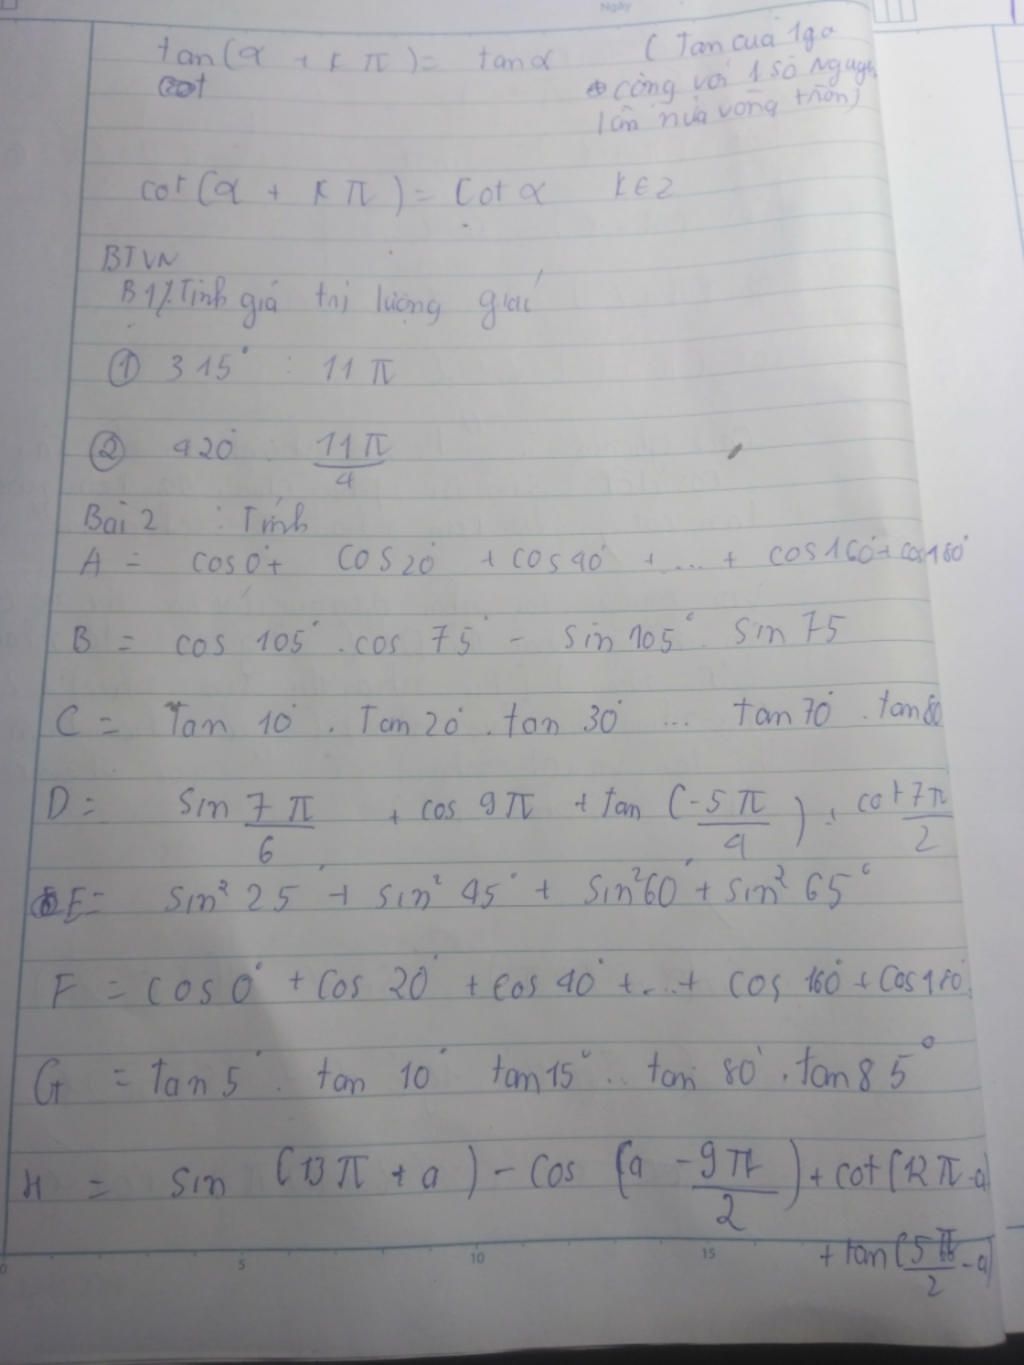 Ngày
tan(α + kπ) = tanα (Tan của 1 góc
cot cộng với 1 số nguyên
lần nửa vòng tròn)
cot(α + kπ) = cotα k∈Z
BTVN
B1/. Tính giá trị lượng giác
① 315° : 11π
② 420° : 11π/4
Bài 2 : Tính
A = cos0° + cos20° + cos40° + ... + cos160° + cos180°
B = cos 105° . cos 75° - sin 105° . sin 75
C = Tan 10° . Tan 20° . tan 30° ... tan 70° . tan 80
D = sin 7π/6 + cos 9π + tan (-5π/4) + cot 7π/2
E = sin² 25° + sin² 45° + sin² 60° + sin² 65°
F = cos 0° + cos 20° + cos 40° + ... + cos 160° + cos 180°
G = tan 5° . tan 10° tan 15° .. tan 80° . tan 85°
H = sin (13π + a) - cos (a - 9π/2) + cot (12π - a)
+ tan (5π/2 - a)
0 5 10 15